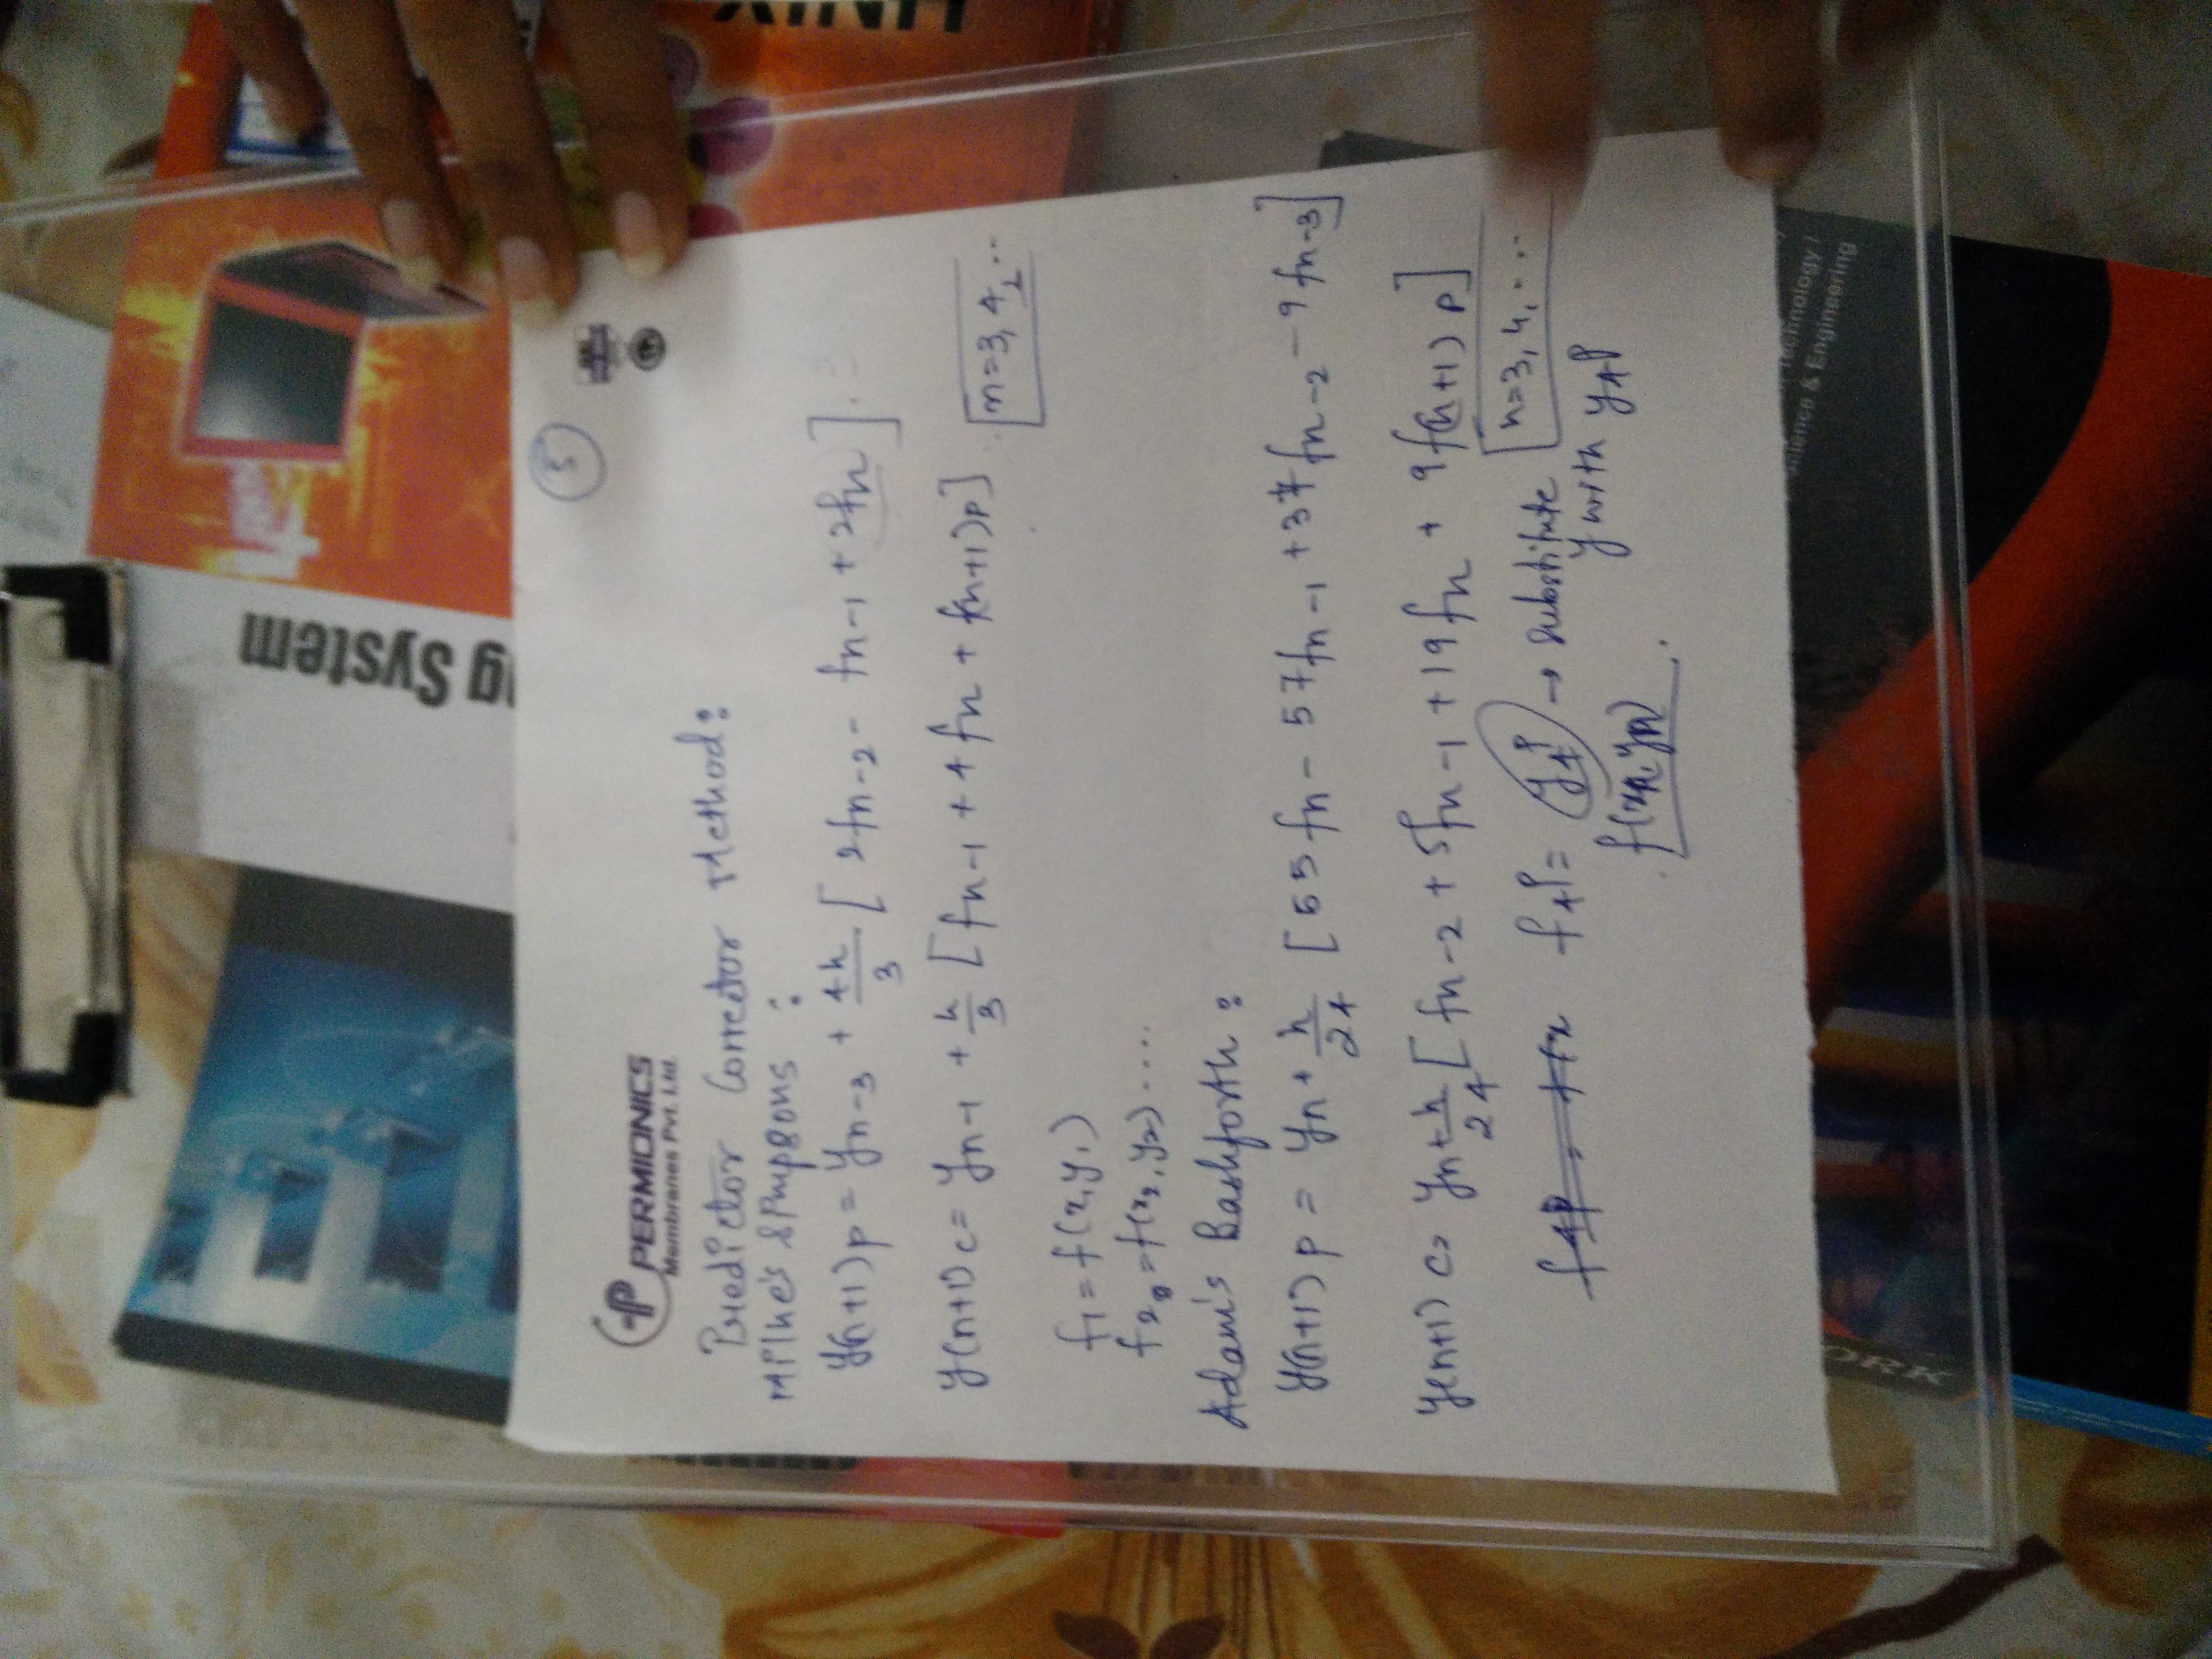 PERMIONICS
Membranes Pvt. Ltd.
5
Predictor Corrector Method:
Milne's Simpsons:
y(n+1)p = yn-3 + 4h/3 [2fn-2 - fn-1 + 2fn]
y(n+1)c = yn-1 + h/3 [fn-1 + 4fn + f(n+1)p]
n=3,4,..
f1 = f(x1y1)
f2 = f(x2,y2)....
Adam's Bashforth:
y(n+1)p = yn + h/24 [55fn - 57fn-1 + 37fn-2 - 9fn-3]
y(n+1)c = yn + h/24 [fn-2 + 5fn-1 + 19fn + 9f(n+1)p]
n=3,4,...
f4p = y4p → substitute
y with y4p
f(xn,yn)
ng System
UNIX
Technology /
Science & Engineering
ORK